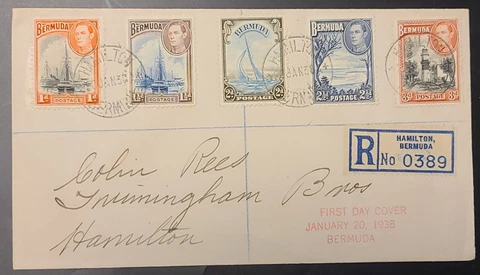 BERMUDA
POSTAGE
1D
BERMUDA
POSTAGE
BERMUDA
POSTAGE
BERMUDA
POSTAGE
BERMUDA
POSTAGE
3D 3D
HAMILTON
BERMUDA
HAMILTON
HAMILTON,
BERMUDA
R No 0389
Colin Rees
Trimingham Bros
Hamilton
FIRST DAY COVER
JANUARY 20, 1938
BERMUDA